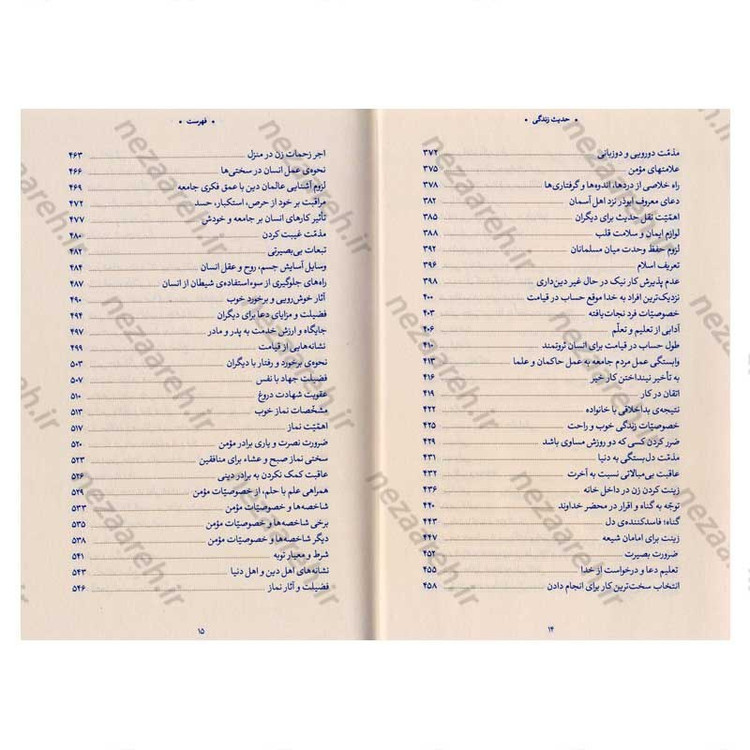 • حدیث زندگی •
مذمّت دورویی و دوزبانی ۳۷۲
علامتهای مؤمن ۳۷۵
راه خلاصی از دردها، اندوه‌ها و گرفتاری‌ها ۳۷۸
دعای معروف ابوذر نزد اهل آسمان ۳۸۲
اهمّیّت نقل حدیث برای دیگران ۳۸۵
لوازم ایمان و سلامت قلب ۳۸۸
لزوم حفظ وحدت میان مسلمانان ۳۹۲
تعریف اسلام ۳۹۶
عدم پذیرش کار نیک در حال غیر دین‌داری ۳۹۸
نزدیک‌ترین افراد به خدا موقع حساب در قیامت ۴۰۰
خصوصیّات فرد نجات‌یافته ۴۰۳
آدابی از تعلیم و تعلّم ۴۰۶
طول حساب در قیامت برای انسان ثروتمند ۴۱۰
وابستگی عمل مردم جامعه به عمل حاکمان و علما ۴۱۳
به تأخیر نینداختن کار خیر ۴۱۶
اتقان در کار ۴۱۹
نتیجه‌ی بداخلاقی با خانواده ۴۲۲
خصوصیّات زندگی خوب و راحت ۴۲۵
ضرر کردن کسی که دو روزش مساوی باشد ۴۲۹
مذمّت دل‌بستگی به دنیا ۴۳۱
عاقبت بی‌مبالاتی نسبت به آخرت ۴۳۲
زینت کردن زن در داخل خانه ۴۳۶
توجّه به گناه و اقرار در محضر خداوند ۴۴۰
گناه؛ فاسدکننده‌ی دل ۴۴۳
زینت برای امامان شیعه ۴۴۷
ضرورت بصیرت ۴۵۲
تعلیم دعا و درخواست از خدا ۴۵۵
انتخاب سخت‌ترین کار برای انجام دادن ۴۵۸
۱۴
• فهرست •
اجر زحمات زن در منزل ۴۶۳
نحوه‌ی عمل انسان در سختی‌ها ۴۶۶
لزوم آشنایی عالمان دین با عمق فکری جامعه ۴۶۹
مراقبت بر خود از حرص، استکبار، حسد ۴۷۲
تأثیر کارهای انسان بر جامعه و خودش ۴۷۷
مذمّت غیبت کردن ۴۸۰
تبعات بی‌بصیرتی ۴۸۲
وسایل آسایش جسم، روح و عقل انسان ۴۸۴
راه‌های جلوگیری از سوءاستفاده‌ی شیطان از انسان ۴۸۷
آثار خوش‌رویی و برخورد خوب ۴۹۰
فضیلت و مزایای دعا برای دیگران ۴۹۴
جایگاه و ارزش خدمت به پدر و مادر ۴۹۷
نشانه‌هایی از قیامت ۴۹۹
نحوه‌ی برخورد و رفتار با دیگران ۵۰۳
فضیلت جهاد با نفس ۵۰۷
عقوبت شهادت دروغ ۵۱۰
مشخّصات نماز خوب ۵۱۳
اهمّیّت نماز ۵۱۷
ضرورت نصرت و یاری برادر مؤمن ۵۲۰
سختی نماز صبح و عشاء برای منافقین ۵۲۳
عاقبت کمک نکردن به برادر دینی ۵۲۶
همراهی علم با حلم، از خصوصیّات مؤمن ۵۲۹
شاخصه‌ها و خصوصیّات مؤمن ۵۳۳
برخی شاخصه‌ها و خصوصیّات مؤمن ۵۳۵
دیگر شاخصه‌ها و خصوصیّات مؤمن ۵۳۸
شرط و معیار توبه ۵۴۱
نشانه‌های اهل دین و اهل دنیا ۵۴۳
فضیلت و آثار نماز ۵۴۶
۱۵
nezaareh.ir